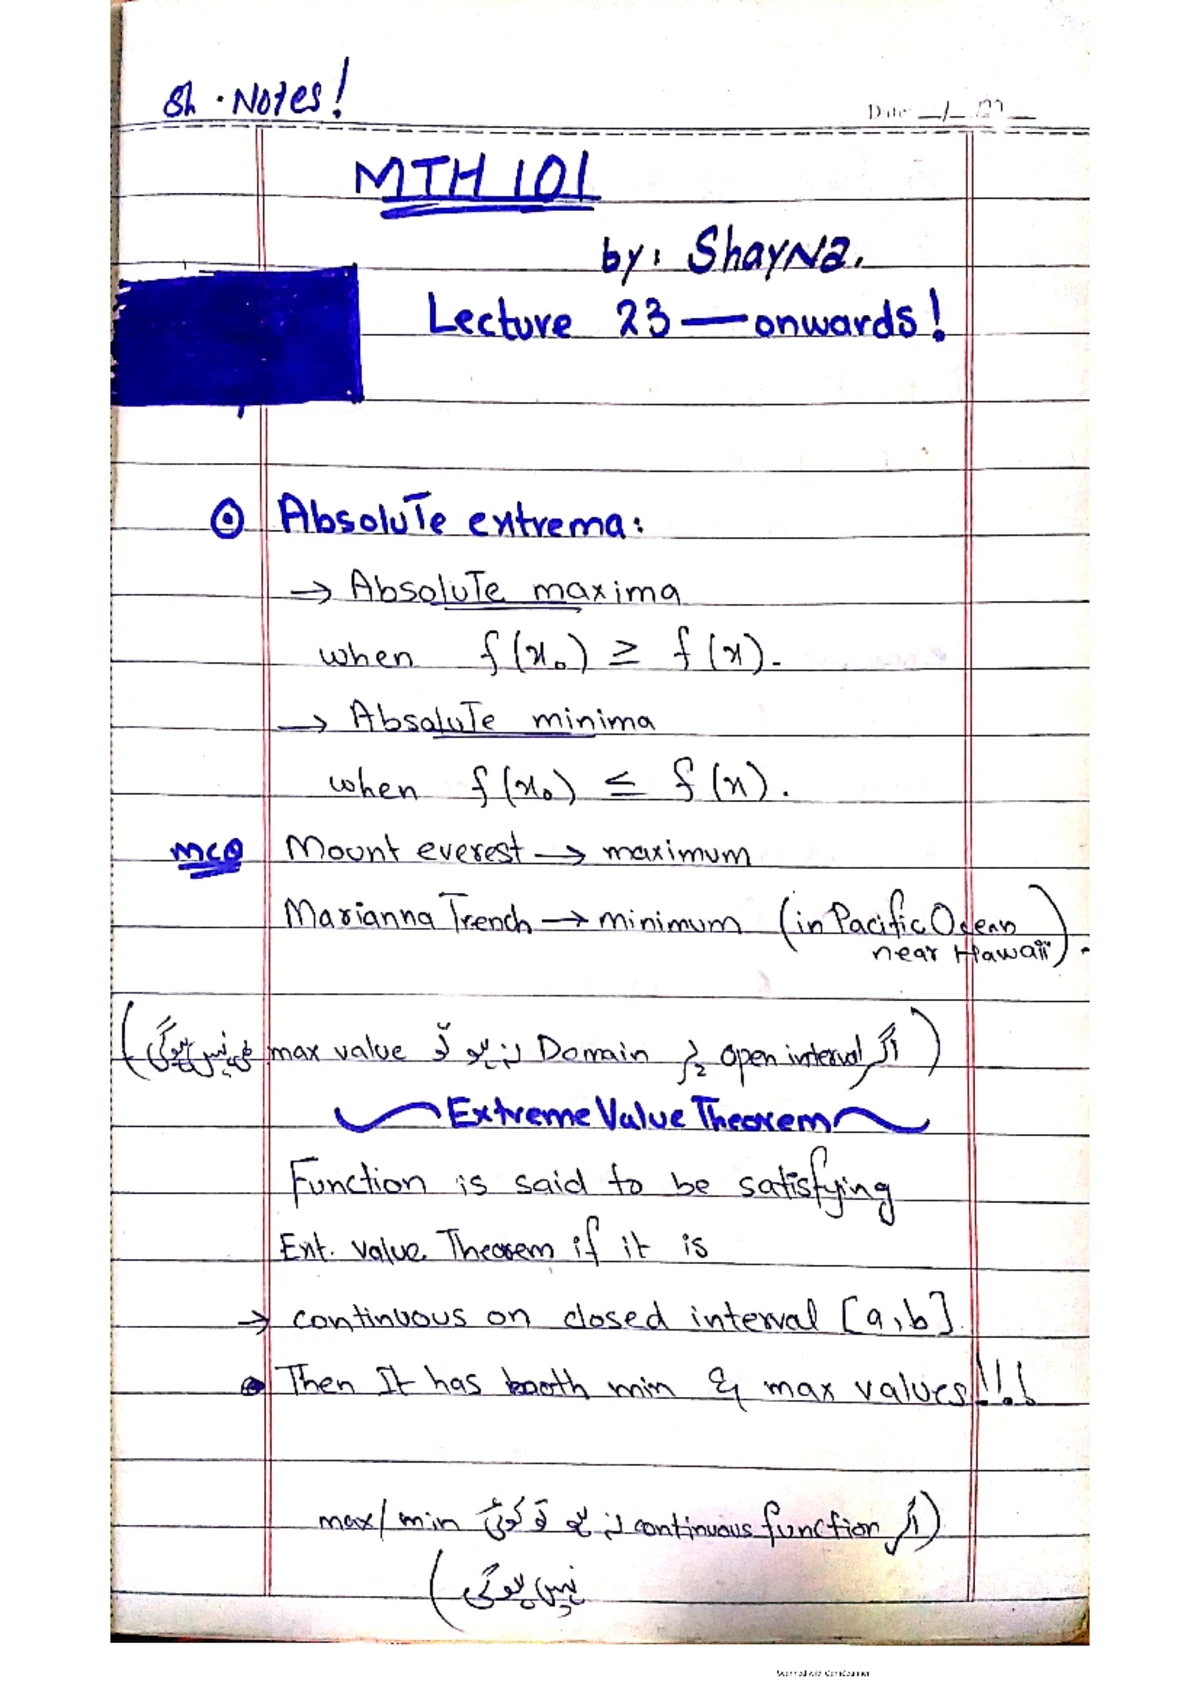 Sh. Notes!
Date: __/__/20__
MTH 101
by: Shayna.
Lecture 23 — onwards!
Absolute extrema:
→ Absolute maxima
when f(x₀) ≥ f(x).
→ Absolute minima
when f(x₀) ≤ f(x).
MCQ Mount everest → maximum
Marianna Trench → minimum (in Pacific Ocean
near Hawaii).
(اگر open interval Domain نہ ہو تو max value نہیں ہوگی)
Extreme Value Theorem
Function is said to be satisfying
Ext. value Theorem if it is
→ continuous on closed interval [a,b]
Then It has booth min & max values!!!
(اگر continuous function نہ ہو تو کوئی max/min
نہیں ہوگی)